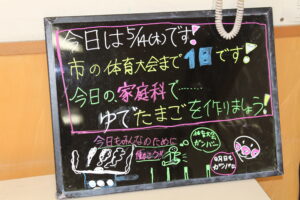 今日は5/14(木)です!
市の体育大会まで1日です!
今日の家庭科で……
ゆでたまごを作りましょう!
今日もみんなのために
体育大会
ガンバレ
明日も